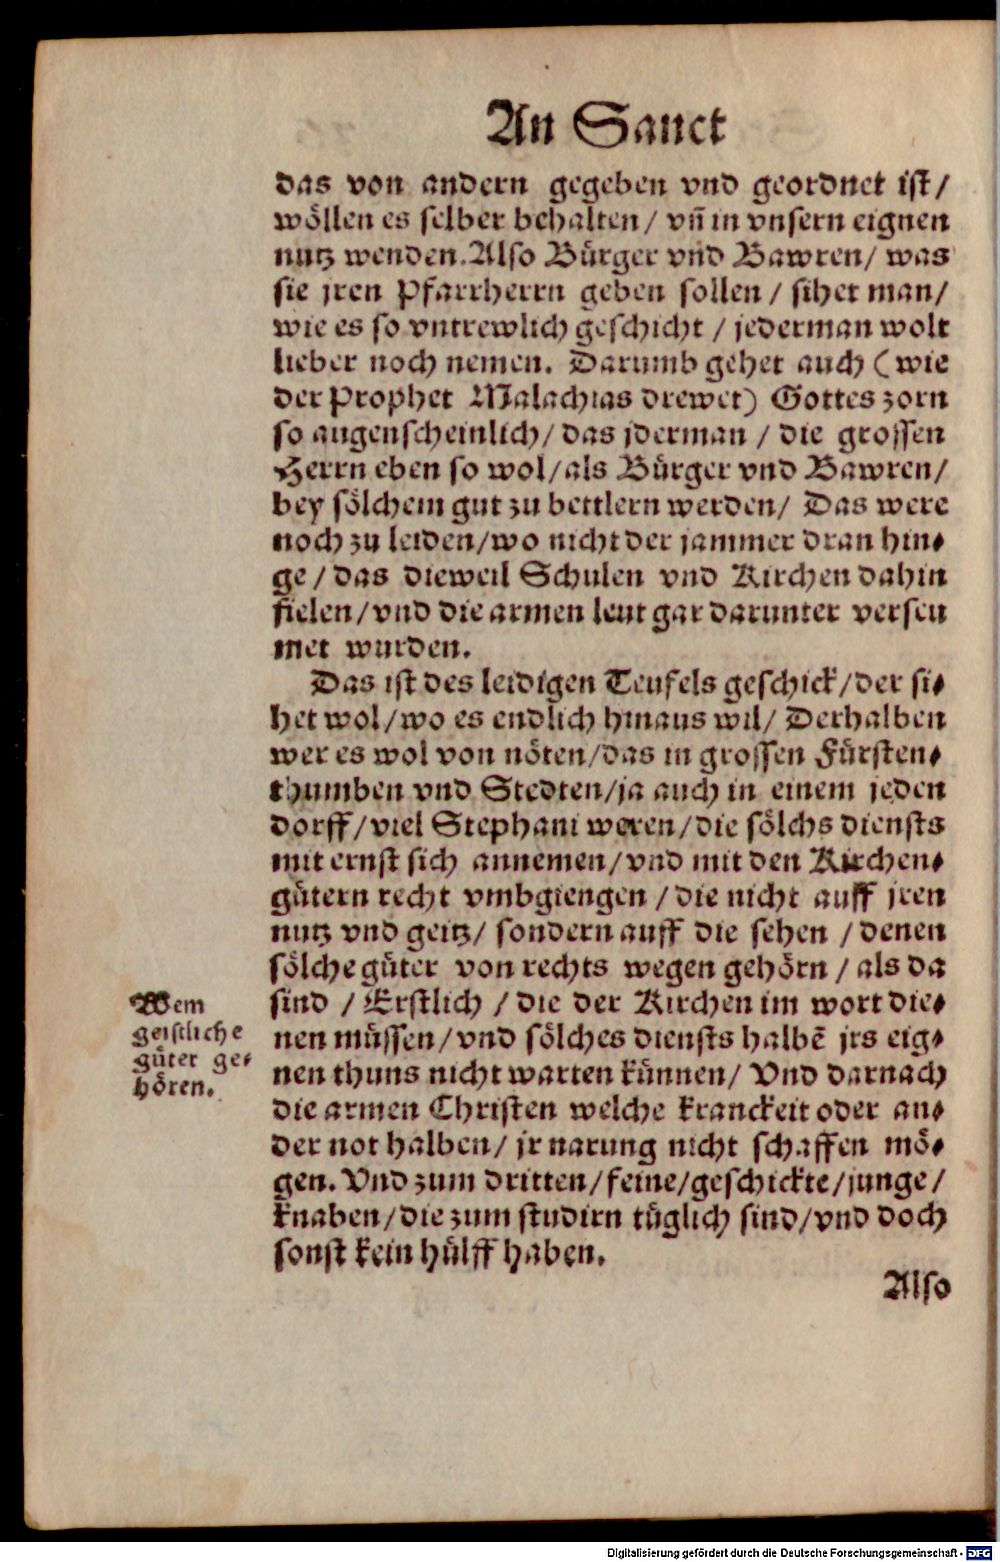 An Sanct
das von andern gegeben vnd geordnet ist/
wöllen es selber behalten/ vñ in vnsern eignen
nutz wenden. Also Bürger vnd Bawren/ was
sie jren Pfarrherrn geben sollen / sihet man/
wie es so vntrewlich geschicht / jederman wolt
lieber noch nemen. Darumb gehet auch (wie
der Prophet Malachias drewet) Gottes zorn
so augenscheinlich/ das jderman / die grossen
Herrn eben so wol/als Bürger vnd Bawren/
bey sölchem gut zu bettlern werden/ Das were
noch zu leiden/wo nicht der jammer dran hin⸗
ge / das dieweil Schulen vnd Kirchen dahin
fielen/vnd die armen leut gar darunter verseu
met wurden.
Das ist des leidigen Teufels geschick/der si⸗
het wol/wo es endlich hinaus wil/ Derhalben
wer es wol von nöten/das in grossen Fürsten⸗
thumben vnd Stedten/ja auch in einem jeden
dorff/viel Stephani weren/die sölchs diensts
mit ernst sich annemen/vnd mit den Kirchen⸗
gütern recht vmbgiengen / die nicht auff jren
nutz vnd geitz/ sondern auff die sehen / denen
sölche güter von rechts wegen gehörn / als da
sind / Erstlich / die der Kirchen im wort die⸗
nen müssen/vnd sölches diensts halbē jrs eig⸗
nen thuns nicht warten künnen/ Vnd darnach
die armen Christen welche kranckeit oder an⸗
der not halben/ jr narung nicht schaffen mö⸗
gen. Vnd zum dritten/feine/geschickte/junge/
knaben/die zum studirn tüglich sind/vnd doch
sonst kein hülff haben.
Also
Wem
geistliche
güter ge⸗
hören.
Digitalisierung gefördert durch die Deutsche Forschungsgemeinschaft - DFG